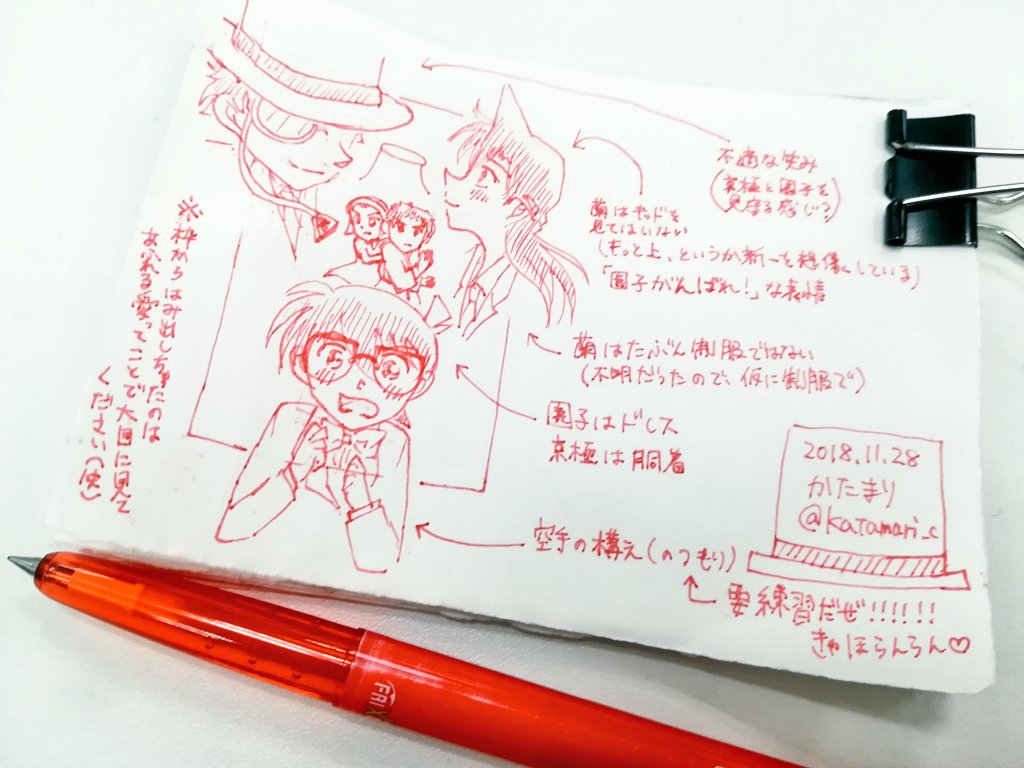 不適な笑み
(京極と園子を
見守る感じ?)
蘭はキッドを
見てはいない
(もっと上、というか新一を想像している)
「園子がんばれ!」な表情
蘭はたぶん制服ではない
(不明だったので、仮に制服で)
園子はドレス
京極は胴着
空手の構え(のつもり)
要練習だぜ!!!!!!
きゃほらんらん♡
※枠からはみ出しちゃたのは
あふれる愛ってことで大目に見て
ください(笑)
2018.11.28
かたまり
@katamari_c
FRIX